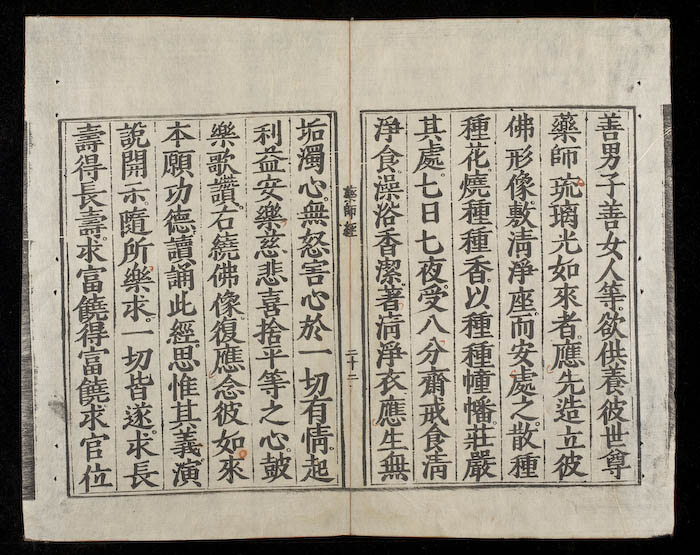 善男子善女人等欲供養彼世尊
藥師琉璃光如來者應先造立彼
佛形像敷清淨座而安處之散種
種花燒種種香以種種幢幡莊嚴
其處七日七夜受八分齋戒食清
淨食澡浴香潔著清淨衣應生無
藥師經
二十二
垢濁心無怒害心於一切有情起
利益安樂慈悲喜捨平等之心皷
樂歌讚右繞佛像復應念彼如來
本願功德讀誦此經思惟其義演
說開示隨所樂求一切皆遂求長
壽得長壽求富饒得富饒求官位